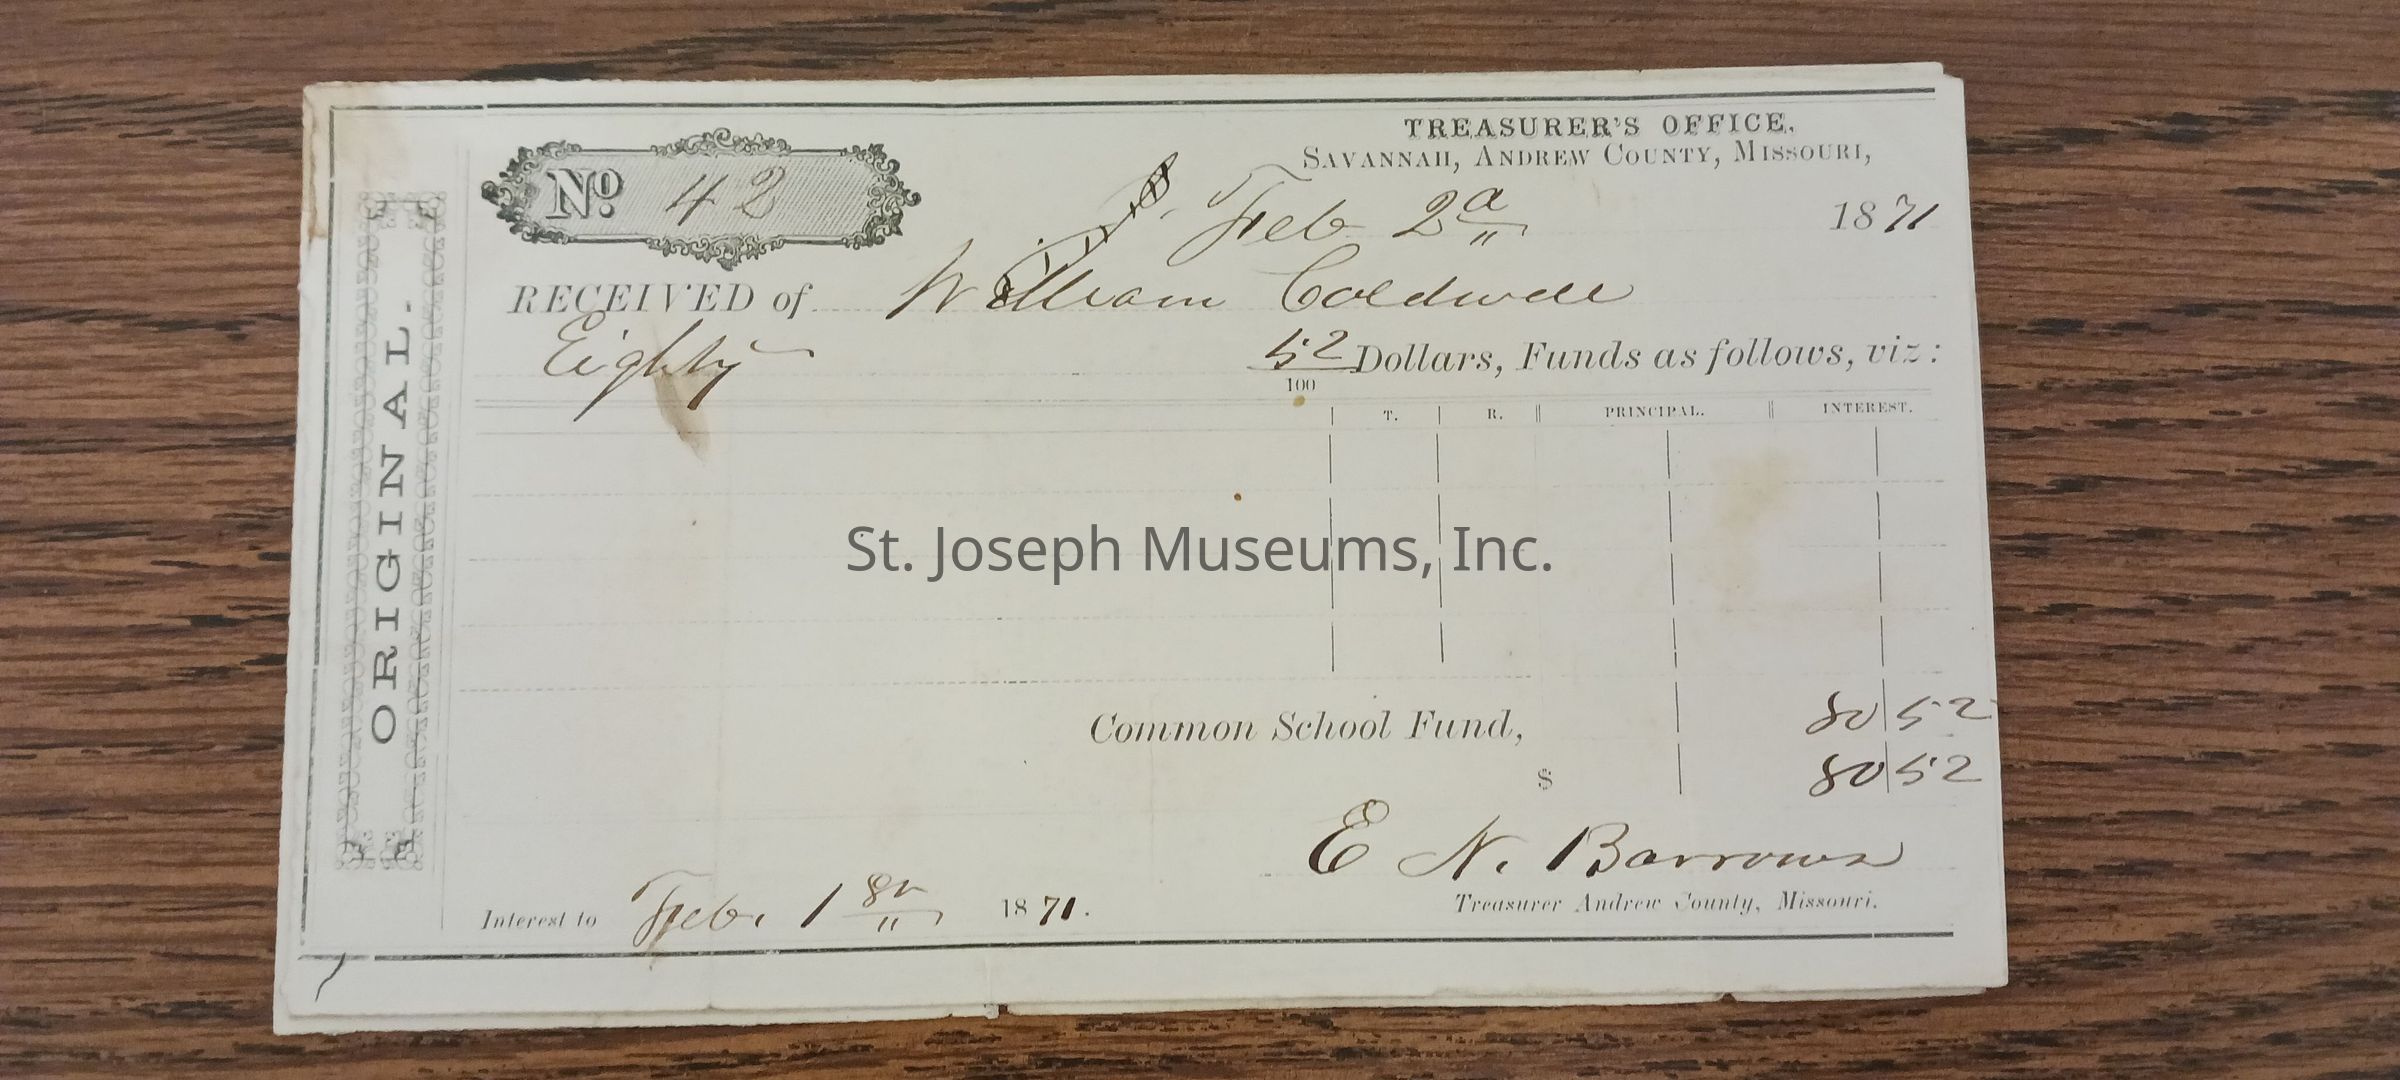 TREASURER'S OFFICE.
SAVANNAH, ANDREW COUNTY, MISSOURI,
No. 42
Feb 2d 1871
RECEIVED of William Coldwell
Eighty 52/100 Dollars, Funds as follows, viz:
T. R. PRINCIPAL. INTEREST.
St. Joseph Museums, Inc.
Common School Fund, 80 52
$ 80 52
E N. Barrows
Treasurer Andrew County, Missouri.
Interest to Feb. 1 1871.
ORIGINAL.